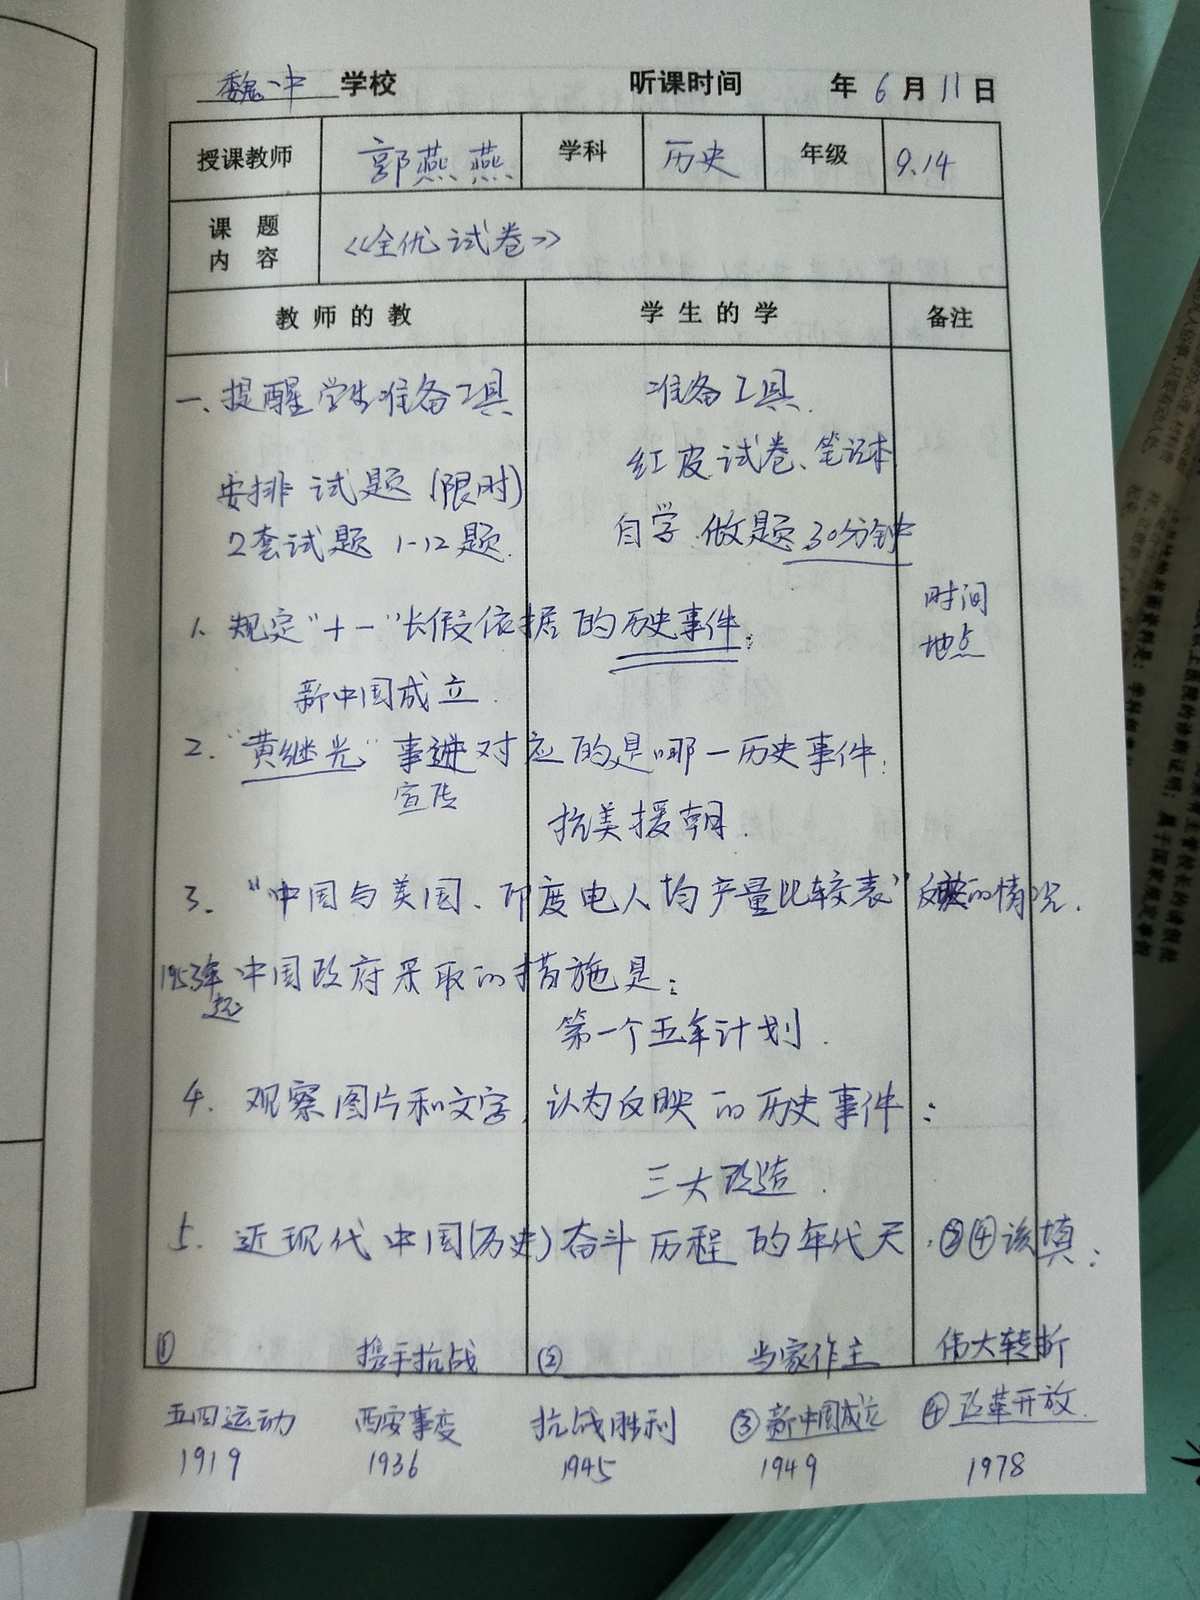 魏一中 学校 听课时间 年6月11日
授课教师 郭燕燕 学科 历史 年级 9.14
课题内容 《全优试卷》
教师的教 学生的学 备注
一、提醒学生准备工具 准备工具.
红皮试卷、笔记本
安排试题(限时)
自学.做题30分钟
2套试题 1-12题.
时间
地点
1. 规定"十一"长假依据的历史事件:
新中国成立.
2. "黄继光"事迹对应的是哪一历史事件:
宣传
抗美援朝.
3. "中国与美国、印度电人均产量比较表"反映的情况.
1953年起 中国政府采取的措施是:
第一个五年计划.
4. 观察图片和文字,认为反映的历史事件:
三大改造.
5. 近现代中国(历史)奋斗历程的年代尺.③④该填:
① 携手抗战 ② 当家作主 伟大转折
五四运动 西安事变 抗战胜利 ③新中国成立 ④改革开放.
1919 1936 1945 1949 1978